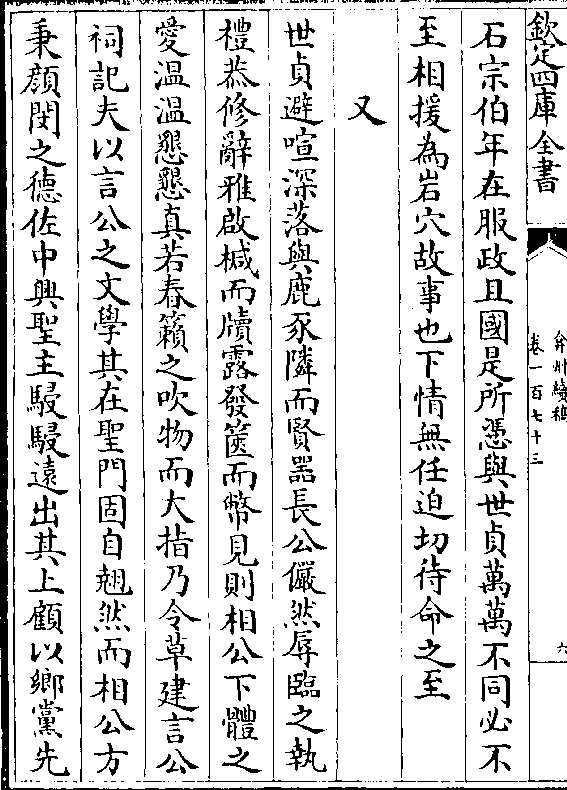 欽定四庫全書
弇州續稿
卷一百七十三
六
石宗伯年在服政且國是所憑與世貞萬萬不同必不
至相援為岩穴故事也下情無任迫切待命之至
又
世貞避喧深落與鹿豕隣而賢器長公儼然辱臨之執
禮恭修辭雅啟椷而牘露發篋而幣見則相公下體之
愛溫溫懇懇真若春籟之吹物而大指乃令草建言公
祠記夫以言公之文學其在聖門固自翹然而相公方
秉顔閔之德佐中興聖主駸駸遠出其上顧以鄉黨先